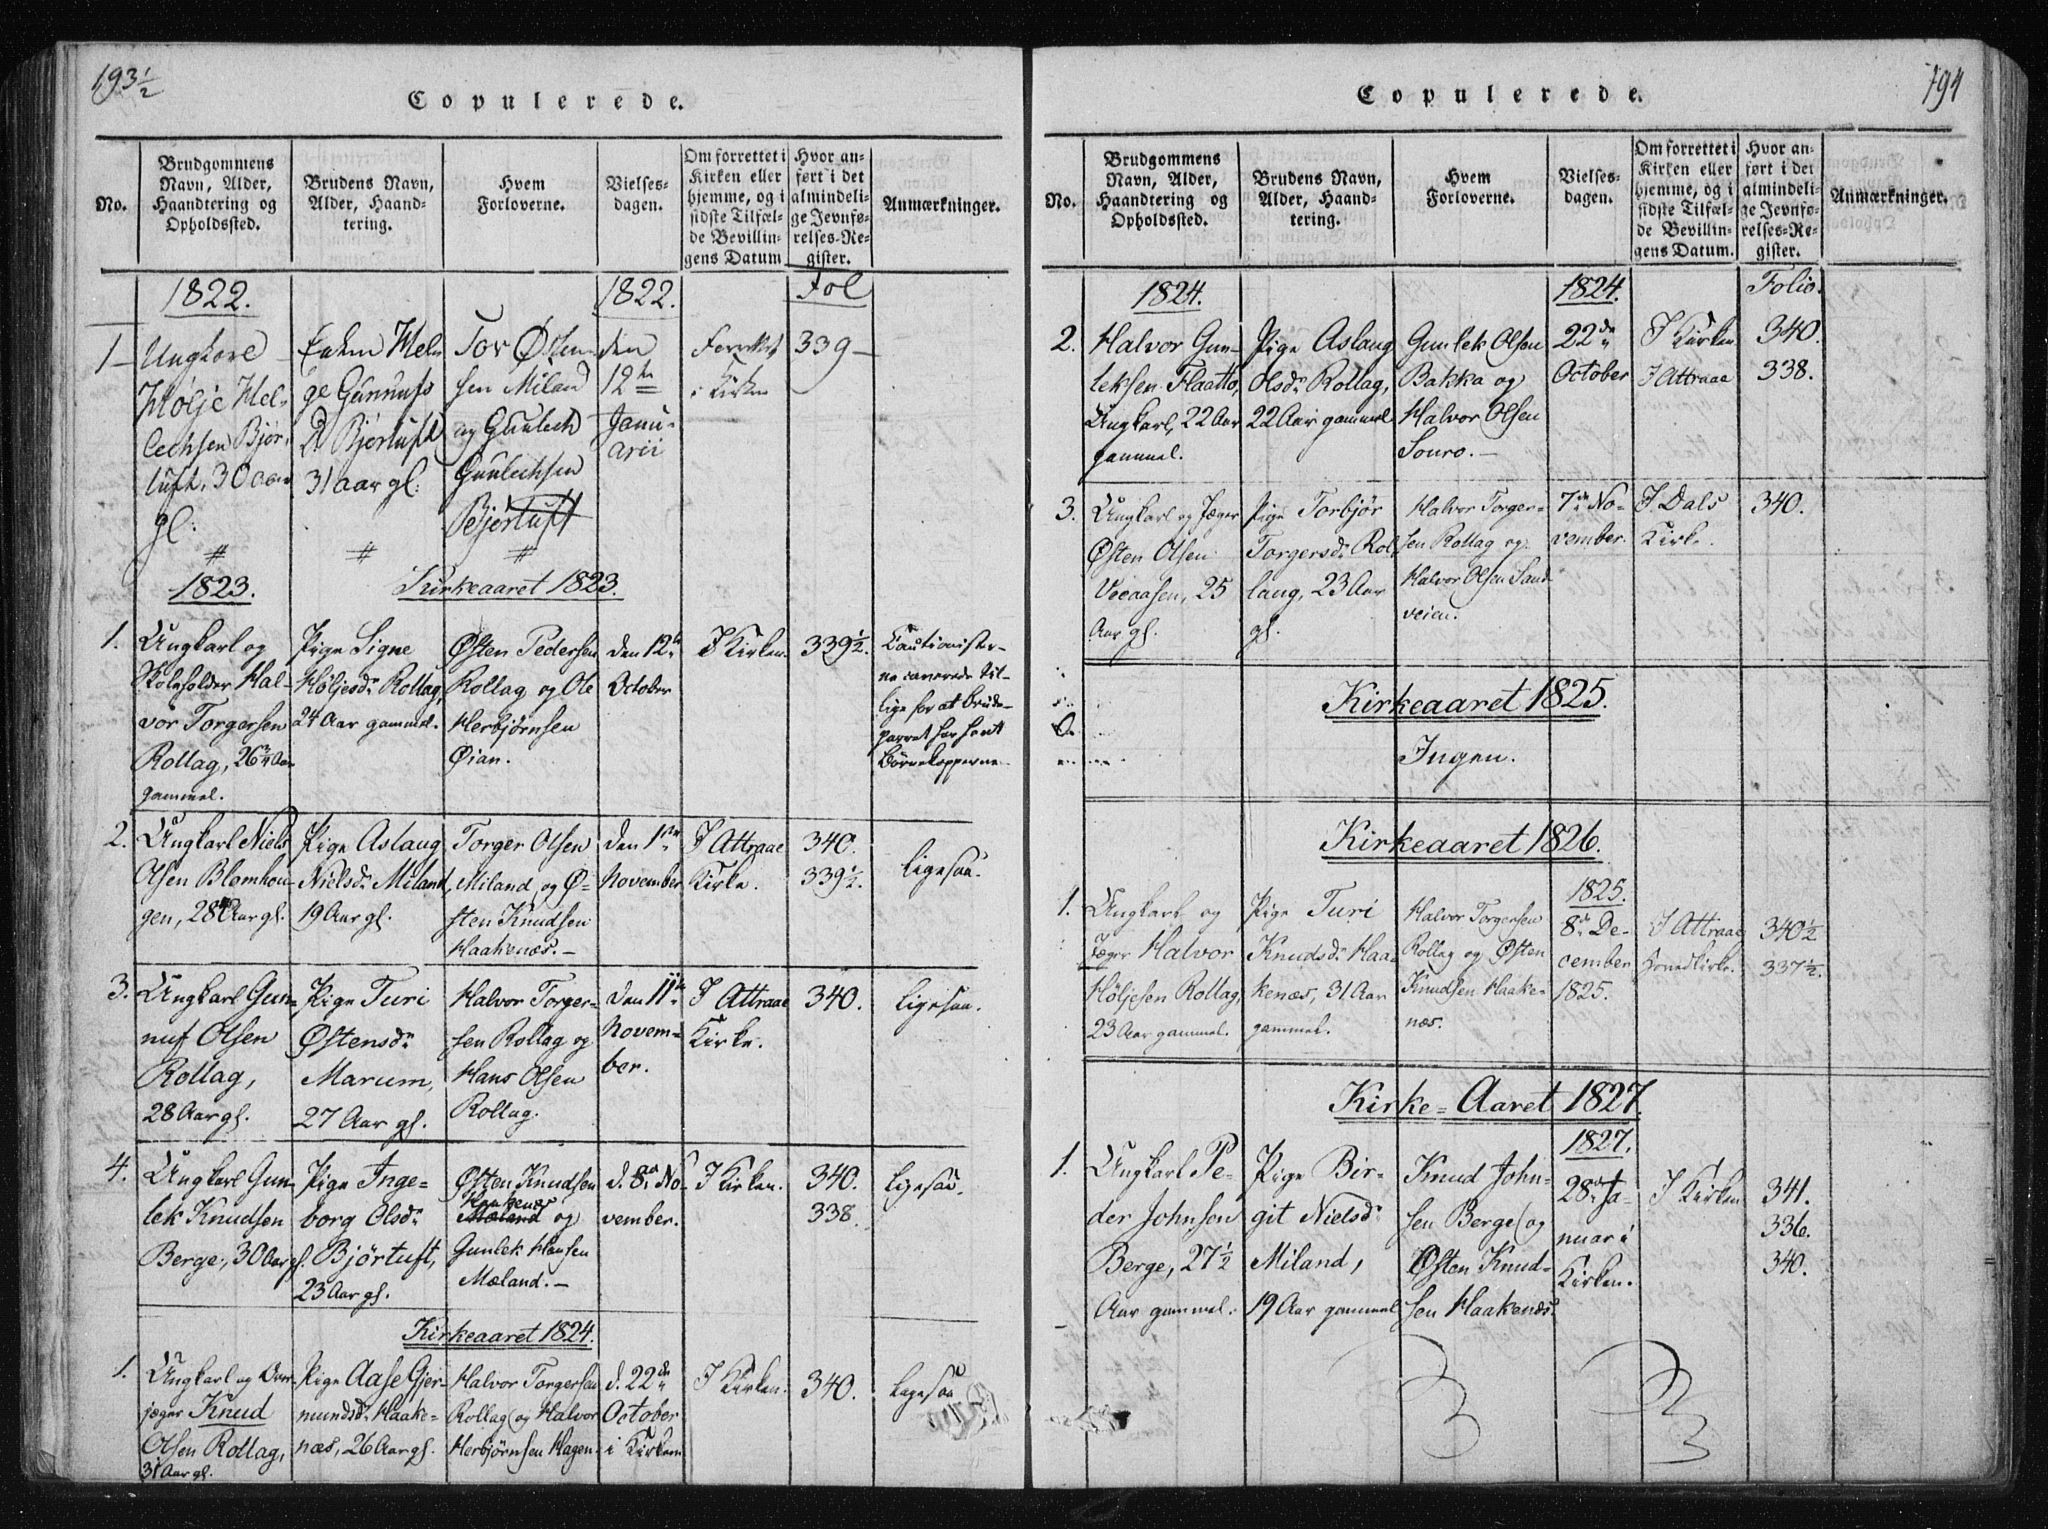 193½
Copulerede.
No.
Brudgommens
Navn, Alder,
Haandtering og
Opholdssted.
Brudens Navn,
Alder, Haand-
tering.
Hvem
Forloverne.
Vielses-
dagen.
Om forrettet i
Kirken eller
hjemme, og i
sidste Tilfæl-
de Bevillin-
gens Datum
Hvor an-
ført i det
almindeli-
ge Jevnfø-
relses-Re-
gister.
Anmærkninger.
1822.
1822.
Fol
1
Ungkarl
Hølje Hel-
lechsen Bjør-
tuft, 30 aar
gl:
Helge Gunnufs
D. Bjørtuft
31 aar gl:
Tor Østen-
sen Miland
og Gunlech
Gunlechsen
Bjørtuft
den
12te
Janu-
arii
Forrettet
i Kirken
339
1823.
Kirkeaaret 1823.
1.
Ungkarl og
Skoleholder Hal-
vor Torgersen
Rollag, 26¾ Aar
gammel.
Pige Signe
Høljesdr. Rollag,
24 Aar gammel.
Østen Pedersen
Rollag og Ole
Herbjørnsen
Øian.
den 12te
October
I Kirken.
339½.
Cautionister-
ne caverede til-
lige for at Brude-
parret har havt
Børnekopperne.
2.
Ungkarl Niels
Olsen Blomhou-
gen, 28 Aar gl.
Pige Aslaug
Nielsdr. Miland,
19 Aar gl.
Torger Olsen
Miland, og Ø-
sten Knudsen
Haakenæs.
den 1ste
November
I Attraae
Kirke.
340.
339½.
Ligesaa.
3.
Ungkarl Gun-
nuf Olsen
Rollag,
28 Aar gl.
Pige Turi
Østensdr.
Marum,
27 Aar gl.
Halvor Torger-
sen Rollag og
Hans Olsen
Rollag.
den 11te
Novem-
ber.
I Attraae
Kirke.
340.
Ligesaa.
4.
Ungkarl Gun-
lek Knudsen
Berge, 30 Aar gl.
Pige Inge-
borg Olsdr.
Bjørtuft,
23 Aar gl.
Østen Knudsen
Haakenæs
Mæland og
Gunlek Hansen
Mæland.
d. 8de No-
vember.
I Kirken.
340.
338.
Ligesaa.
Kirkeaaret 1824.
1.
Ungkarl og Over-
jæger Knud
Olsen Rollag,
31 Aar gl.
Pige Aase Gjer-
mundsdr. Haake-
næs, 26 Aar gl.
Halvor Torgersen
Rollag og Halvor
Herbjørnsen Hagen
d. 22de
October
i Kirken
I Kirken.
340.
Ligesaa
194
Copulerede.
No.
Brudgommens
Navn, Alder,
Haandtering og
Opholdssted.
Brudens Navn,
Alder, Haand-
tering.
Hvem
Forloverne.
Vielses-
dagen.
Om forrettet i
Kirken eller
hjemme, og i
sidste Tilfæl-
de Bevillin-
gens Datum.
Hvor an-
ført i det
almindeli-
ge Jevnfø-
relses-Re-
gister.
Anmærkninger.
1824.
1824.
Folio.
2.
Halvor Gun-
leksen Flaatto,
Ungkarl, 22 Aar
gammel.
Pige Aslaug
Olsdr. Rollag,
22 Aar gammel
Gunlek Olsen
Bakka og
Halvor Olsen
Souro.
22de
October
I Kirken
I Attraae
340.
338.
3.
Ungkarl og Jæger
Østen Olsen
Veeaasen, 25
Aar gl.
Pige Torbjør
Torgersdr. Rol-
laug, 23 Aar
gl.
Halvor Torger-
sen Rollag og
Halvor Olsen Sand-
veien.
7de No-
vember.
I Dals
Kirke.
340.
Kirkeaaret 1825.
Ingen.
Kirkeaaret 1826.
1825.
1.
Ungkarl og
Jæger Halvor
Høljesen Rollag,
23 Aar gammel.
Pige Turi
Knudsdr. Haa-
kenæs, 31 Aar
gammel.
Halvor Torgersen
Rollag og Østen
Knudsen Haake-
næs.
8de De-
cember
1825.
I Attraae
Hovedkirke.
340½
337½.
Kirke-Aaret 1827.
1827.
1.
Ungkarl Pe-
der Johnsen
Berge, 27½
Aar gammel.
Pige Bir-
git Nielsdr.
Miland,
19 Aar gammel
Knud John-
sen Berge og
Østen Knud-
sen Haakenæs.
28de Ja-
nuar i
Kirken.
I Kirken
341.
336.
340.